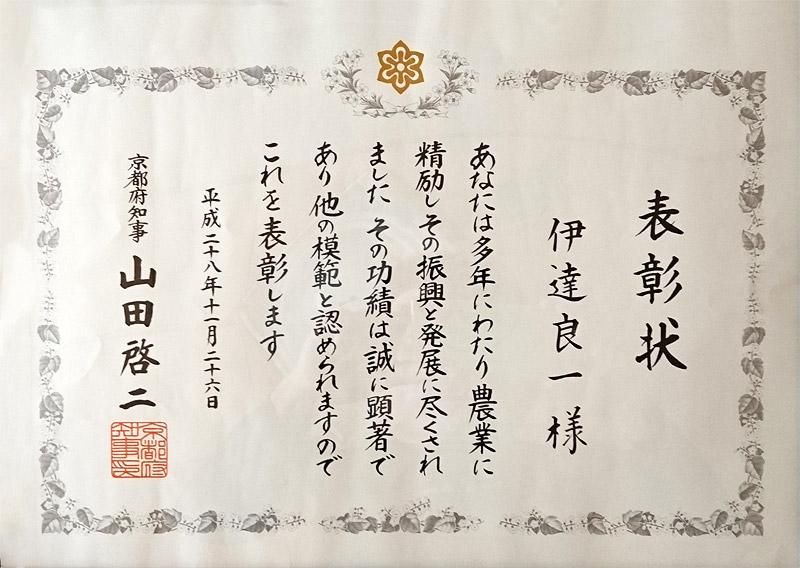 表彰状
伊達良一様
あなたは多年にわたり農業に
精励しその振興と発展に尽くされ
ました その功績は誠に顕著で
あり他の模範と認められますので
これを表彰します
平成二十八年十一月二十六日
京都府知事 山田啓二
京都府
知事印